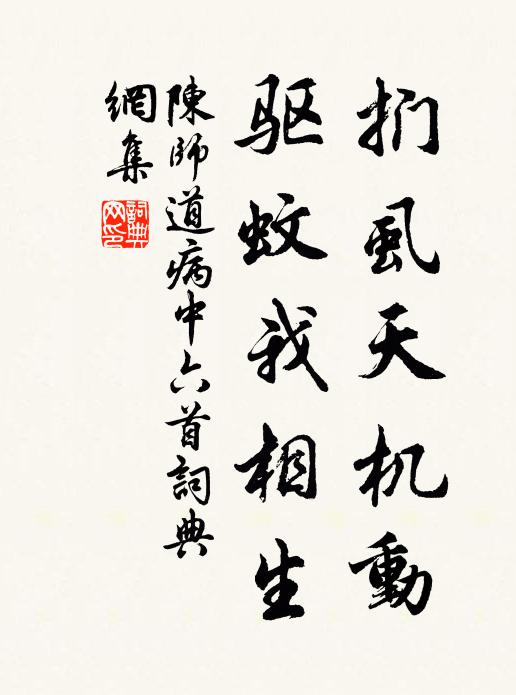 扪虱天机動
驱蚊我相生
陳師道病中六首詞典
網集
詞典
网印